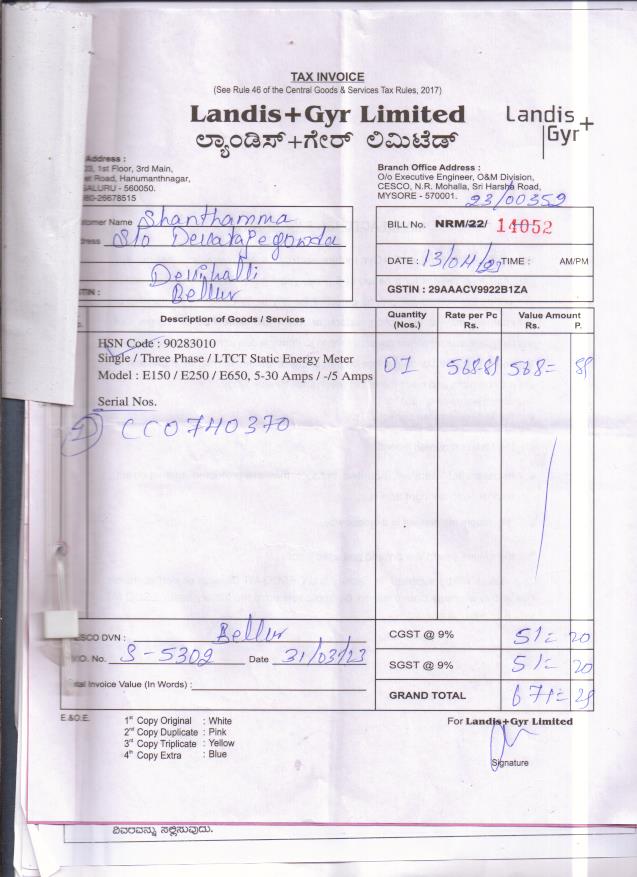 TAX INVOICE
(See Rule 46 of the Central Goods & Services Tax Rules, 2017)
Landis+Gyr Limited
ಲ್ಯಾಂಡಿಸ್+ಗೇರ್ ಲಿಮಿಟೆಡ್
Landis
Gyr+
Address :
1st Floor, 3rd Main,
Road, Hanumanthnagar,
- 560050.
26678515
Branch Office Address :
O/o Executive Engineer, O&M Division,
CESCO, N.R. Mohalla, Sri Harsha Road,
MYSORE - 570001. 23/00359
Name Shanthamma
S/o
Bellur
BILL No. NRM/22/ 14052
DATE : 13/04/23 TIME : AM/PM
GSTIN : 29AAACV9922B1ZA
Description of Goods / Services Quantity (Nos.) Rate per Pc Rs. Value Amount Rs. P.
HSN Code : 90283010
Single / Three Phase / LTCT Static Energy Meter
Model : E150 / E250 / E650, 5-30 Amps / -/5 Amps 01 568-88 568= 88
Serial Nos.
1 CC0740370
DVN : Bellur
No. S-5302 Date 31/03/23
Invoice Value (In Words) :
CGST @ 9% 51= 20
SGST @ 9% 51= 20
GRAND TOTAL 671= 28
E.&O.E.
1st Copy Original : White
2nd Copy Duplicate : Pink
3rd Copy Triplicate : Yellow
4th Copy Extra : Blue
For Landis+Gyr Limited
Signature
ವಿವರವನ್ನು ಸಲ್ಲಿಸುವುದು.